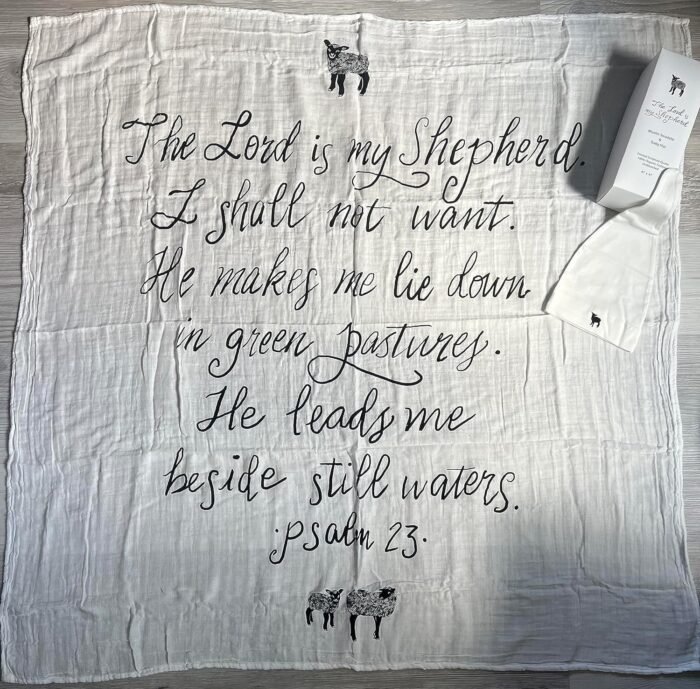 The Lord is my Shepherd.
I shall not want.
He makes me lie down
in green pastures.
He leads me
beside still waters.
·psalm 23·
The Lord is
my Shepherd